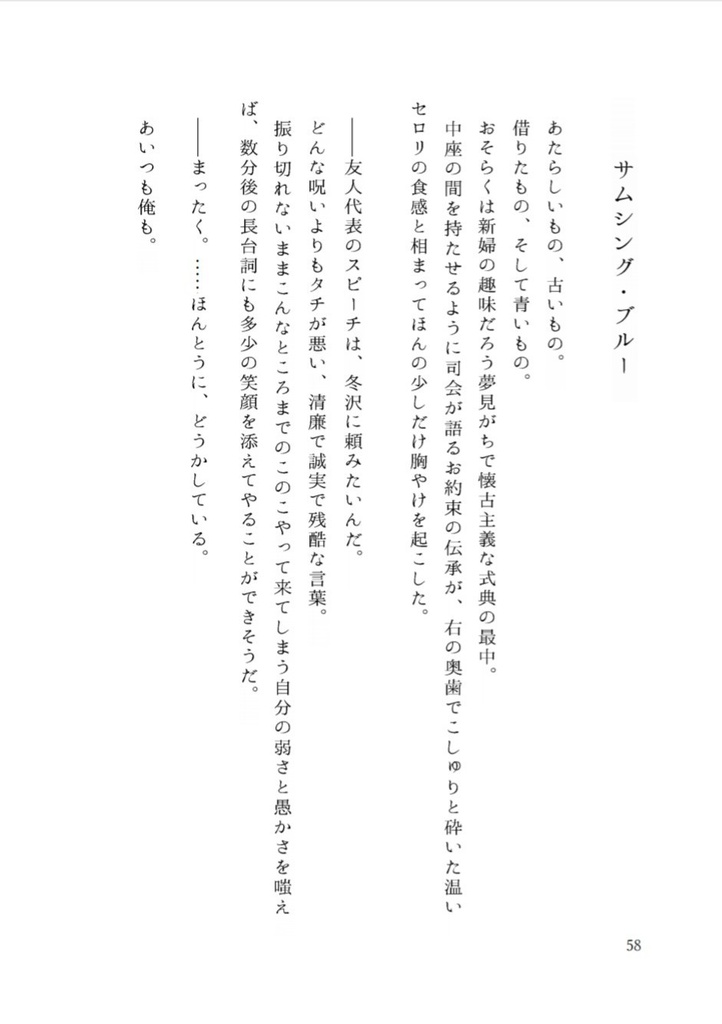 サムシング・ブルー
あたらしいもの、古いもの。
借りたもの、そして青いもの。
おそらくは新婦の趣味だろう夢見がちで懐古主義な式典の最中。
中座の間を持たせるように司会が語るお約束の伝承が、右の奥歯でこしゅりと砕いた温い
セロリの食感と相まってほんの少しだけ胸やけを起こした。
――友人代表のスピーチは、冬沢に頼みたいんだ。
どんな呪いよりもタチが悪い、清廉で誠実で残酷な言葉。
振り切れないままこんなところまでのこのこやって来てしまう自分の弱さと愚かさを嗤え
ば、数分後の長台詞にも多少の笑顔を添えてやることができそうだ。
――まったく。……ほんとうに、どうかしている。
あいつも俺も。
58